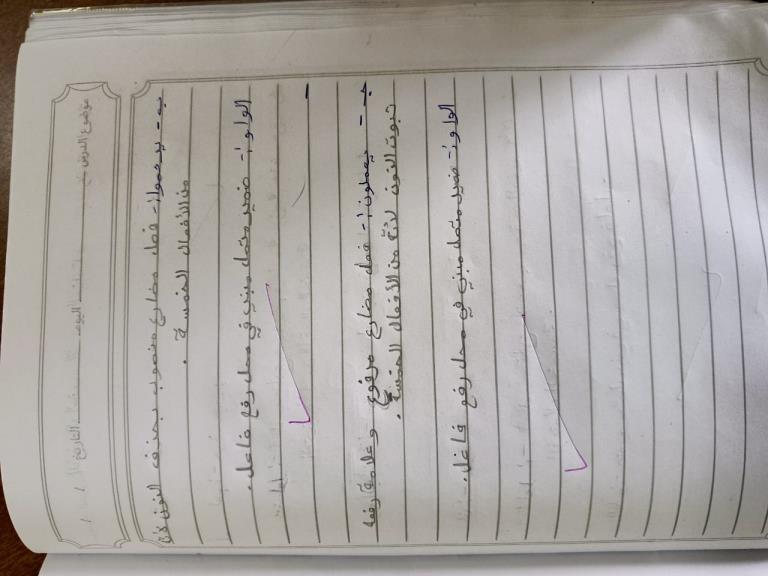 موضوع الدرس اليوم التاريخ / /
ب - يرحموا :- فعل مضارع منصوب بحذف النون لأنه
من الأفعال الخمسة .
الواو :- ضمير متصل مبني في محل رفع فاعل .
-
ج - يعملون :- فعل مضارع مرفوع وعلامة رفعه
ثبوت النون لأنّه من الأفعال الخمسة .
الواو :- ضمير متصل مبني في محل رفع فاعل .